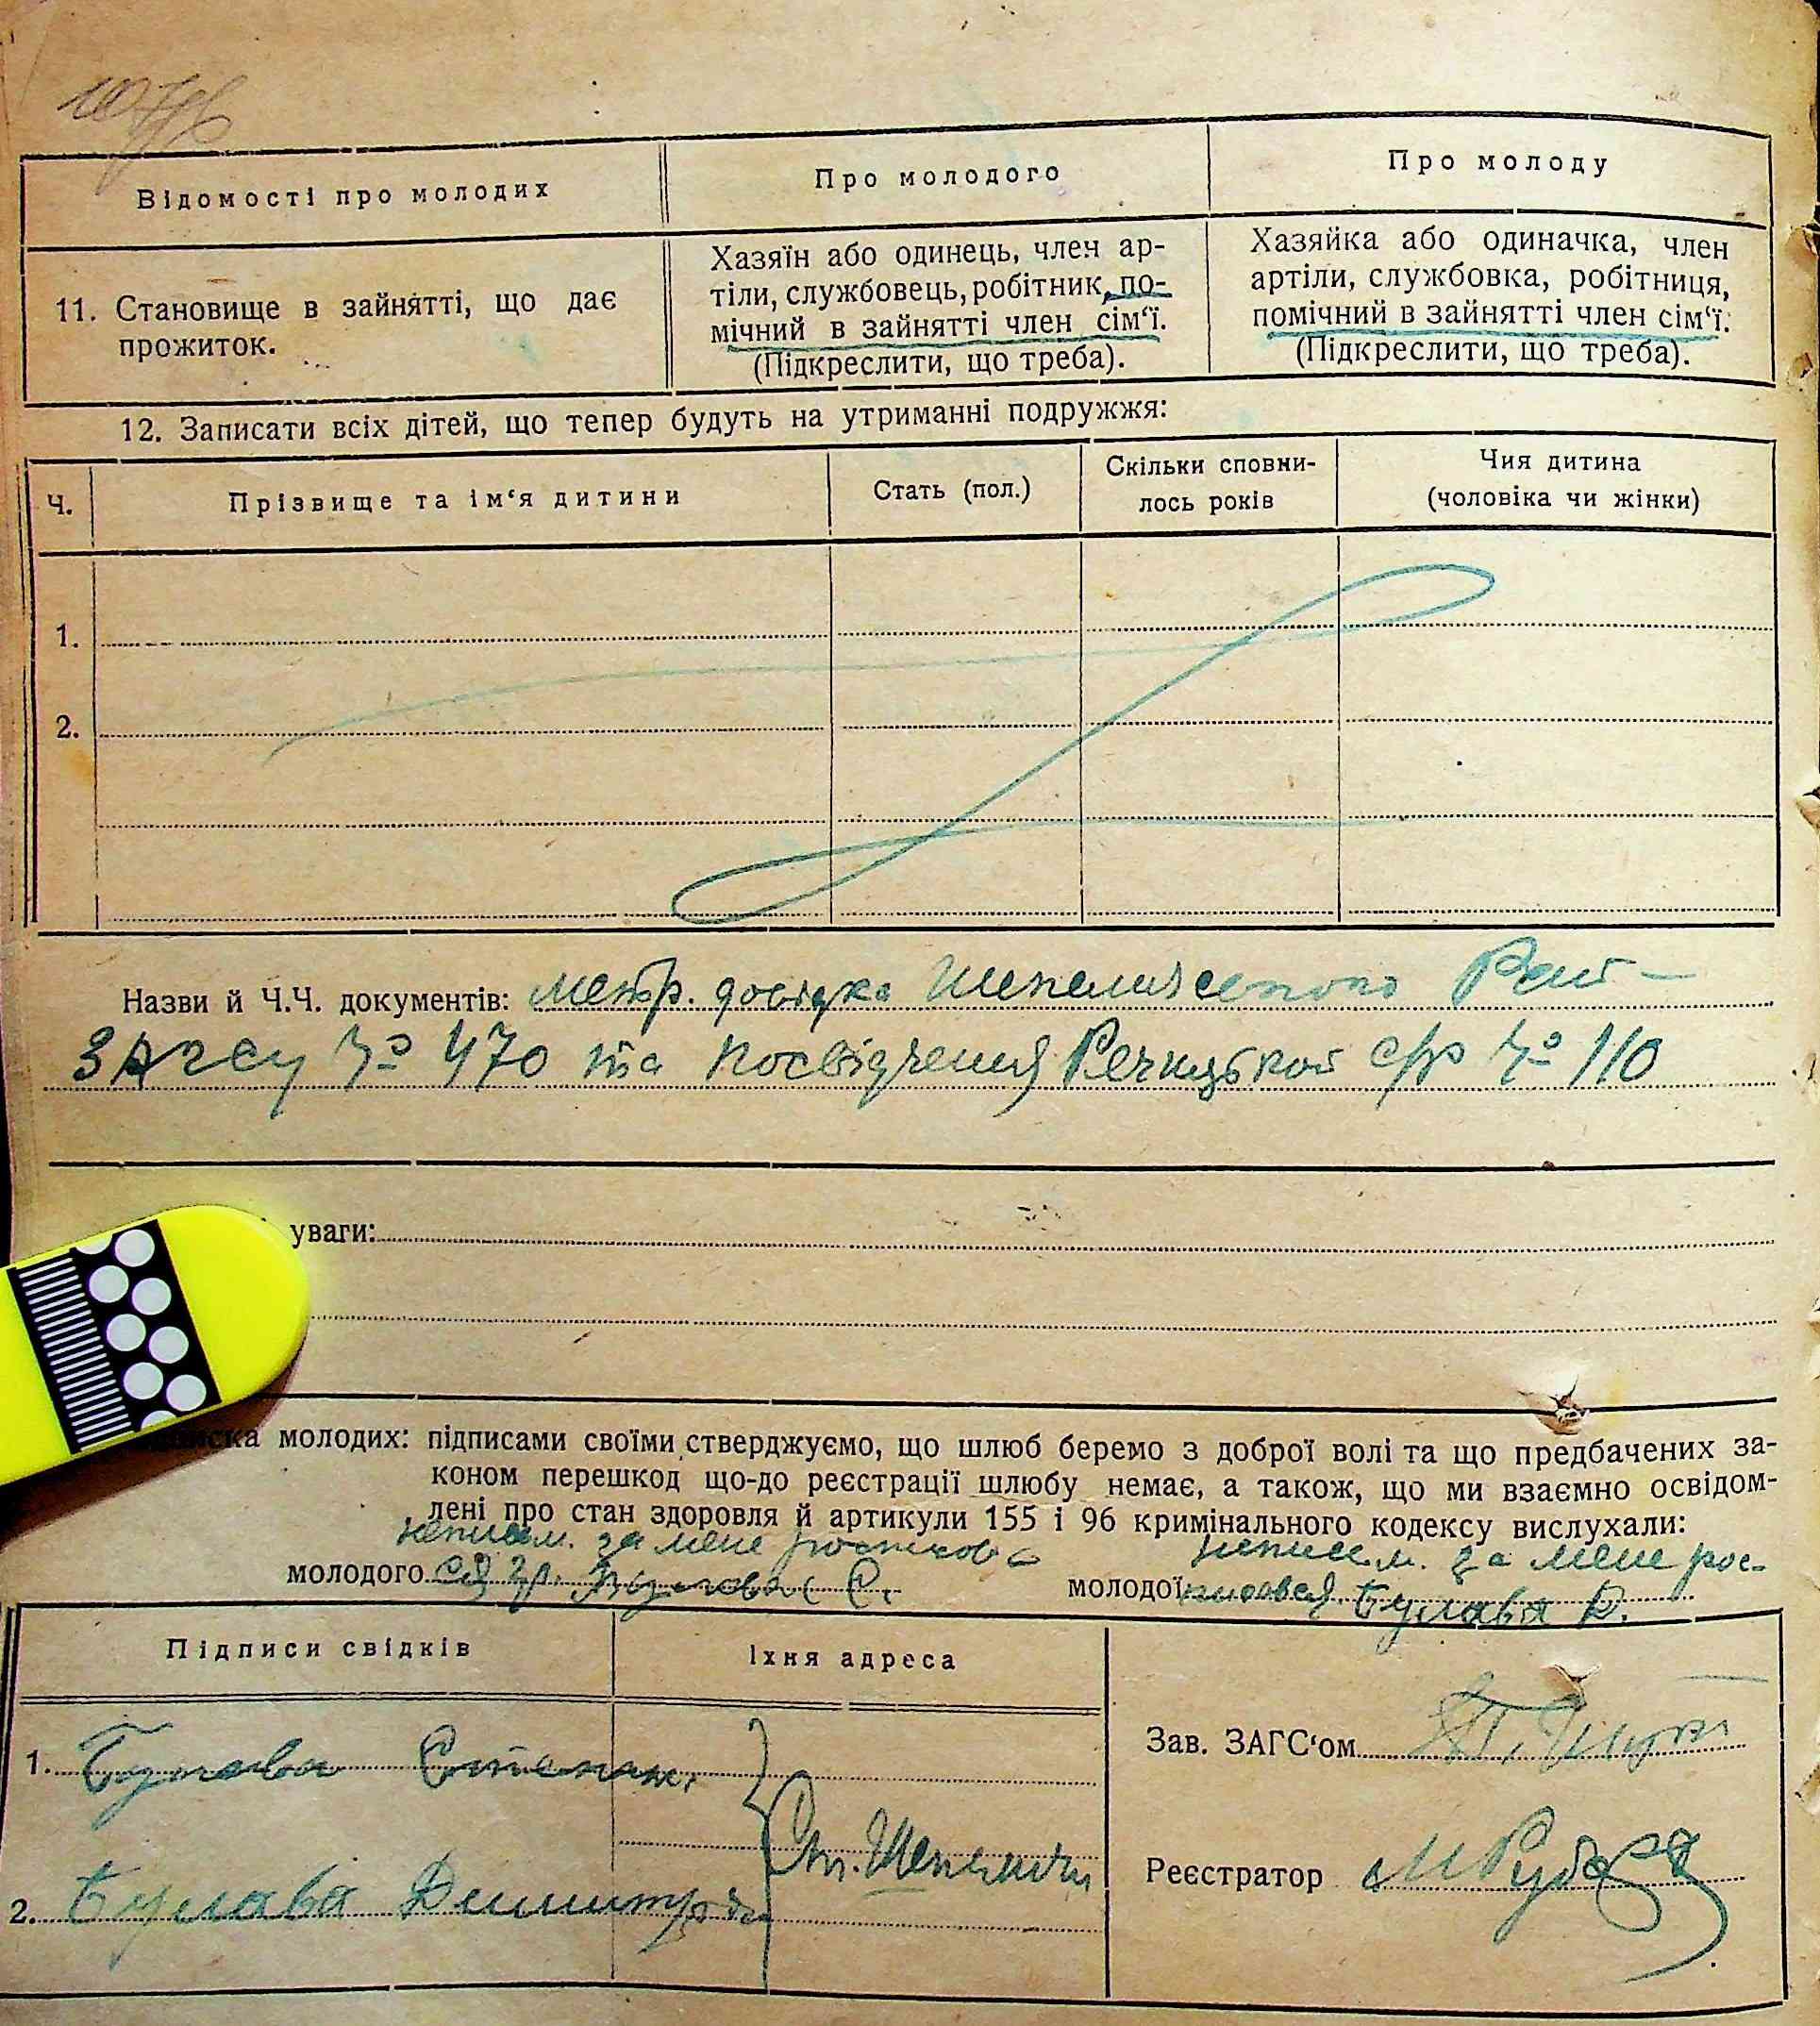 Відомості про молодих
Про молодого
Про молоду
11. Становище в зайнятті, що дає
прожиток.
Хазяїн або одинець, член ар-
тіли, службовець, робітник, по-
мічний в зайнятті член сім‘ї.
(Підкреслити, що треба).
Хазяйка або одиначка, член
артіли, службовка, робітниця,
помічний в зайнятті член сім‘ї.
(Підкреслити, що треба).
12. Записати всіх дітей, що тепер будуть на утриманні подружжя:
Ч.
Прізвище та ім‘я дитини
Стать (пол.)
Скільки сповни-
лось років
Чия дитина
(чоловіка чи жінки)
1.
2.
Назви й Ч.Ч. документів: метр. довідка Шепелицького Рай-
ЗАГСу № 470 та посвідчення Речицької с/р № 110
уваги:
молодих: підписами своїми стверджуємо, що шлюб беремо з доброї волі та що предбачених за-
коном перешкод що-до реєстрації шлюбу немає, а також, що ми взаємно освідом-
лені про стан здоровля й артикули 155 і 96 кримінального кодексу вислухали:
неписьм. за мене росписав
молодого ся гр. Булава С.
неписьм. за мене рос-
молодої писався Булава Д.
Підписи свідків
Їхня адреса
1. Булава Степан
2. Булава Дмитро
Ст. Шепеличі
Зав. ЗАГС‘ом
Реєстратор